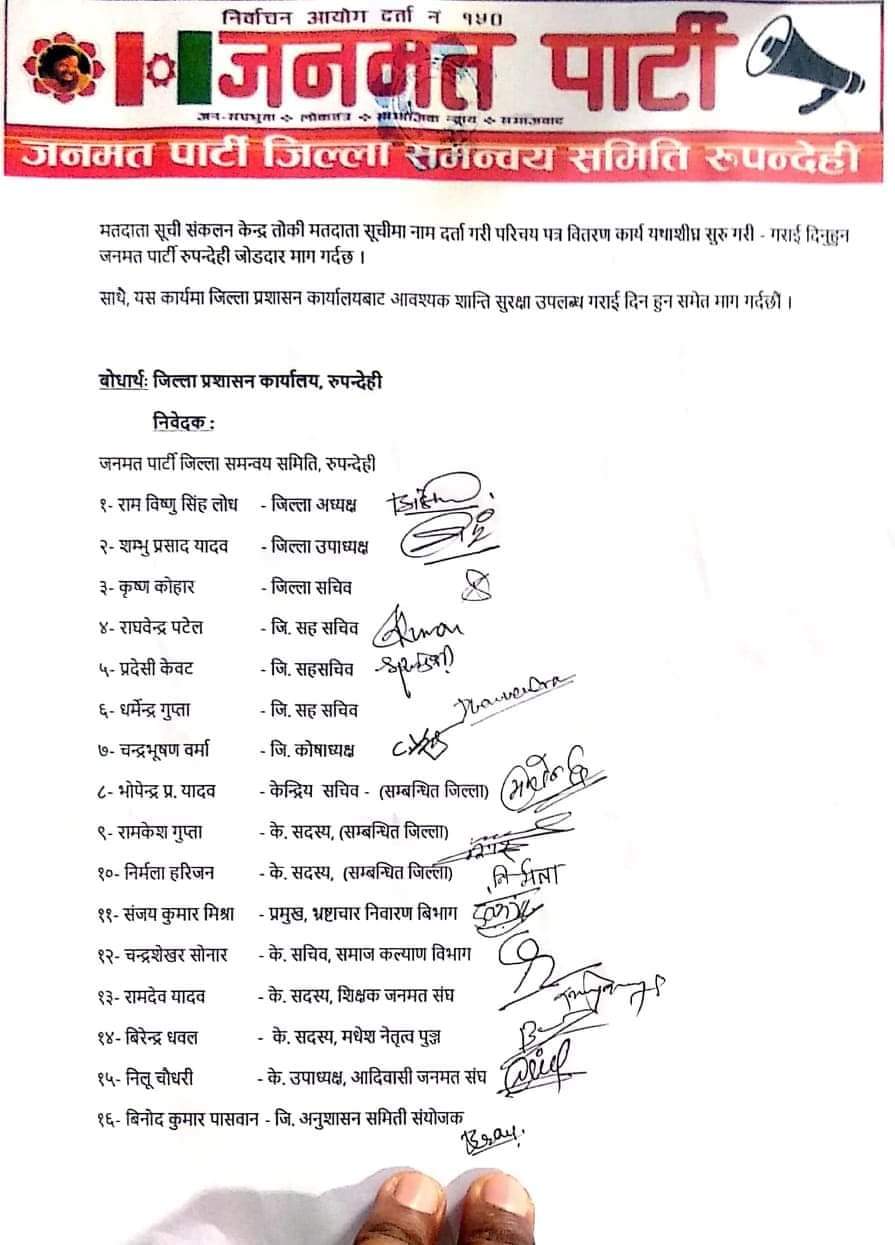 निर्वाचन आयोग दर्ता नं १५०
जनमत पार्टी
जन-सर्वभूता ❖ लोकतन्त्र ❖ सामाजिक न्याय ❖ समाजवाद
जनमत पार्टी जिल्ला समन्वय समिति रुपन्देही
मतदाता सूची संकलन केन्द्र तोकी मतदाता सूचीमा नाम दर्ता गरी परिचय पत्र वितरण कार्य यथाशीघ्र सुरु गरी - गराई दिनुहुन
जनमत पार्टी रुपन्देही जोडदार माग गर्दछ ।
साथै, यस कार्यमा जिल्ला प्रशासन कार्यालयबाट आवश्यक शान्ति सुरक्षा उपलब्ध गराई दिन हुन समेत माग गर्दछौं ।
बोधार्थः जिल्ला प्रशासन कार्यालय, रुपन्देही
निवेदक :
जनमत पार्टी जिल्ला समन्वय समिति, रुपन्देही
१- राम विष्णु सिंह लोध - जिल्ला अध्यक्ष
२- शम्भु प्रसाद यादव - जिल्ला उपाध्यक्ष
३- कृष्ण कोहार - जिल्ला सचिव
४- राघवेन्द्र पटेल - जि. सह सचिव
५- प्रदेसी केवट - जि. सहसचिव
६- धर्मेन्द्र गुप्ता - जि. सह सचिव
७- चन्द्रभूषण वर्मा - जि. कोषाध्यक्ष
८- भोपेन्द्र प्र. यादव - केन्द्रिय सचिव - (सम्बन्धित जिल्ला)
९- रामकेश गुप्ता - के. सदस्य, (सम्बन्धित जिल्ला)
१०- निर्मला हरिजन - के. सदस्य, (सम्बन्धित जिल्ला) निर्मला
११- संजय कुमार मिश्रा - प्रमुख, भ्रष्टाचार निवारण बिभाग
१२- चन्द्रशेखर सोनार - के. सचिव, समाज कल्याण विभाग
१३- रामदेव यादव - के. सदस्य, शिक्षक जनमत संघ
१४- बिरेन्द्र धवल - के. सदस्य, मधेश नेतृत्व पुञ्ज
१५- निलू चौधरी - के. उपाध्यक्ष, आदिवासी जनमत संघ
१६- बिनोद कुमार पासवान - जि. अनुशासन समिती संयोजक